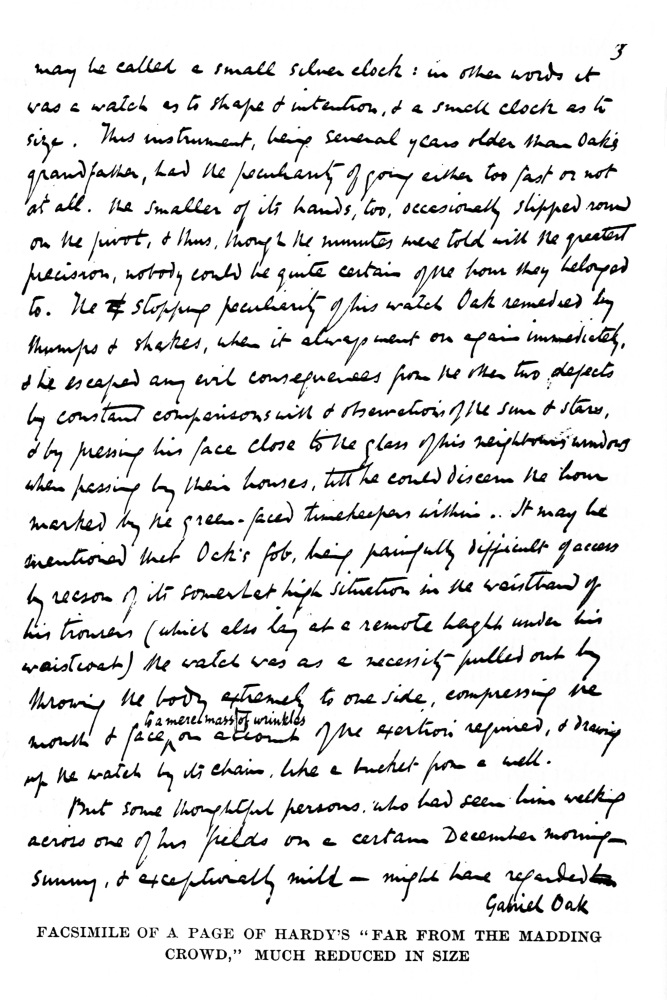 3
may be called a small silver clock: in other words it
was a watch as to shape & intention, & a small clock as to
size. This instrument, being several years older than Oak's
grandfather, had the peculiarity of going either too fast or not
at all. The smaller of its hands, too, occasionally slipped round
on the pivot, & thus, though the minutes were told with the greatest
precision, nobody could be quite certain of the hour they belonged
to. The stopping peculiarity of his watch Oak remedied by
thumps & shakes, when it always went on again immediately,
& he escaped any evil consequences from the other two defects
by constant comparisons with & observations of the sun & stars,
& by pressing his face close to the glass of his neighbour's windows
when passing by their houses, till he could discern the hour
marked by the green-faced timekeepers within.. It may be
mentioned that Oak's fob, being painfully difficult of access
by reason of its somewhat high situation in the waistband of
his trousers (which also lay at a remote height under his
waistcoat) the watch was as a necessity pulled out by
throwing the body extremely to one side, compressing the
to a mere mass of wrinkles
mouth & face on account of the exertion required, & drawing
up the watch by its chain, like a bucket from a well.
But some thoughtful persons, who had seen him walking
across one of his fields on a certain December morning—
sunny, & exceptionally mild — might have regarded
Gabriel Oak
FACSIMILE OF A PAGE OF HARDY'S "FAR FROM THE MADDING
CROWD," MUCH REDUCED IN SIZE